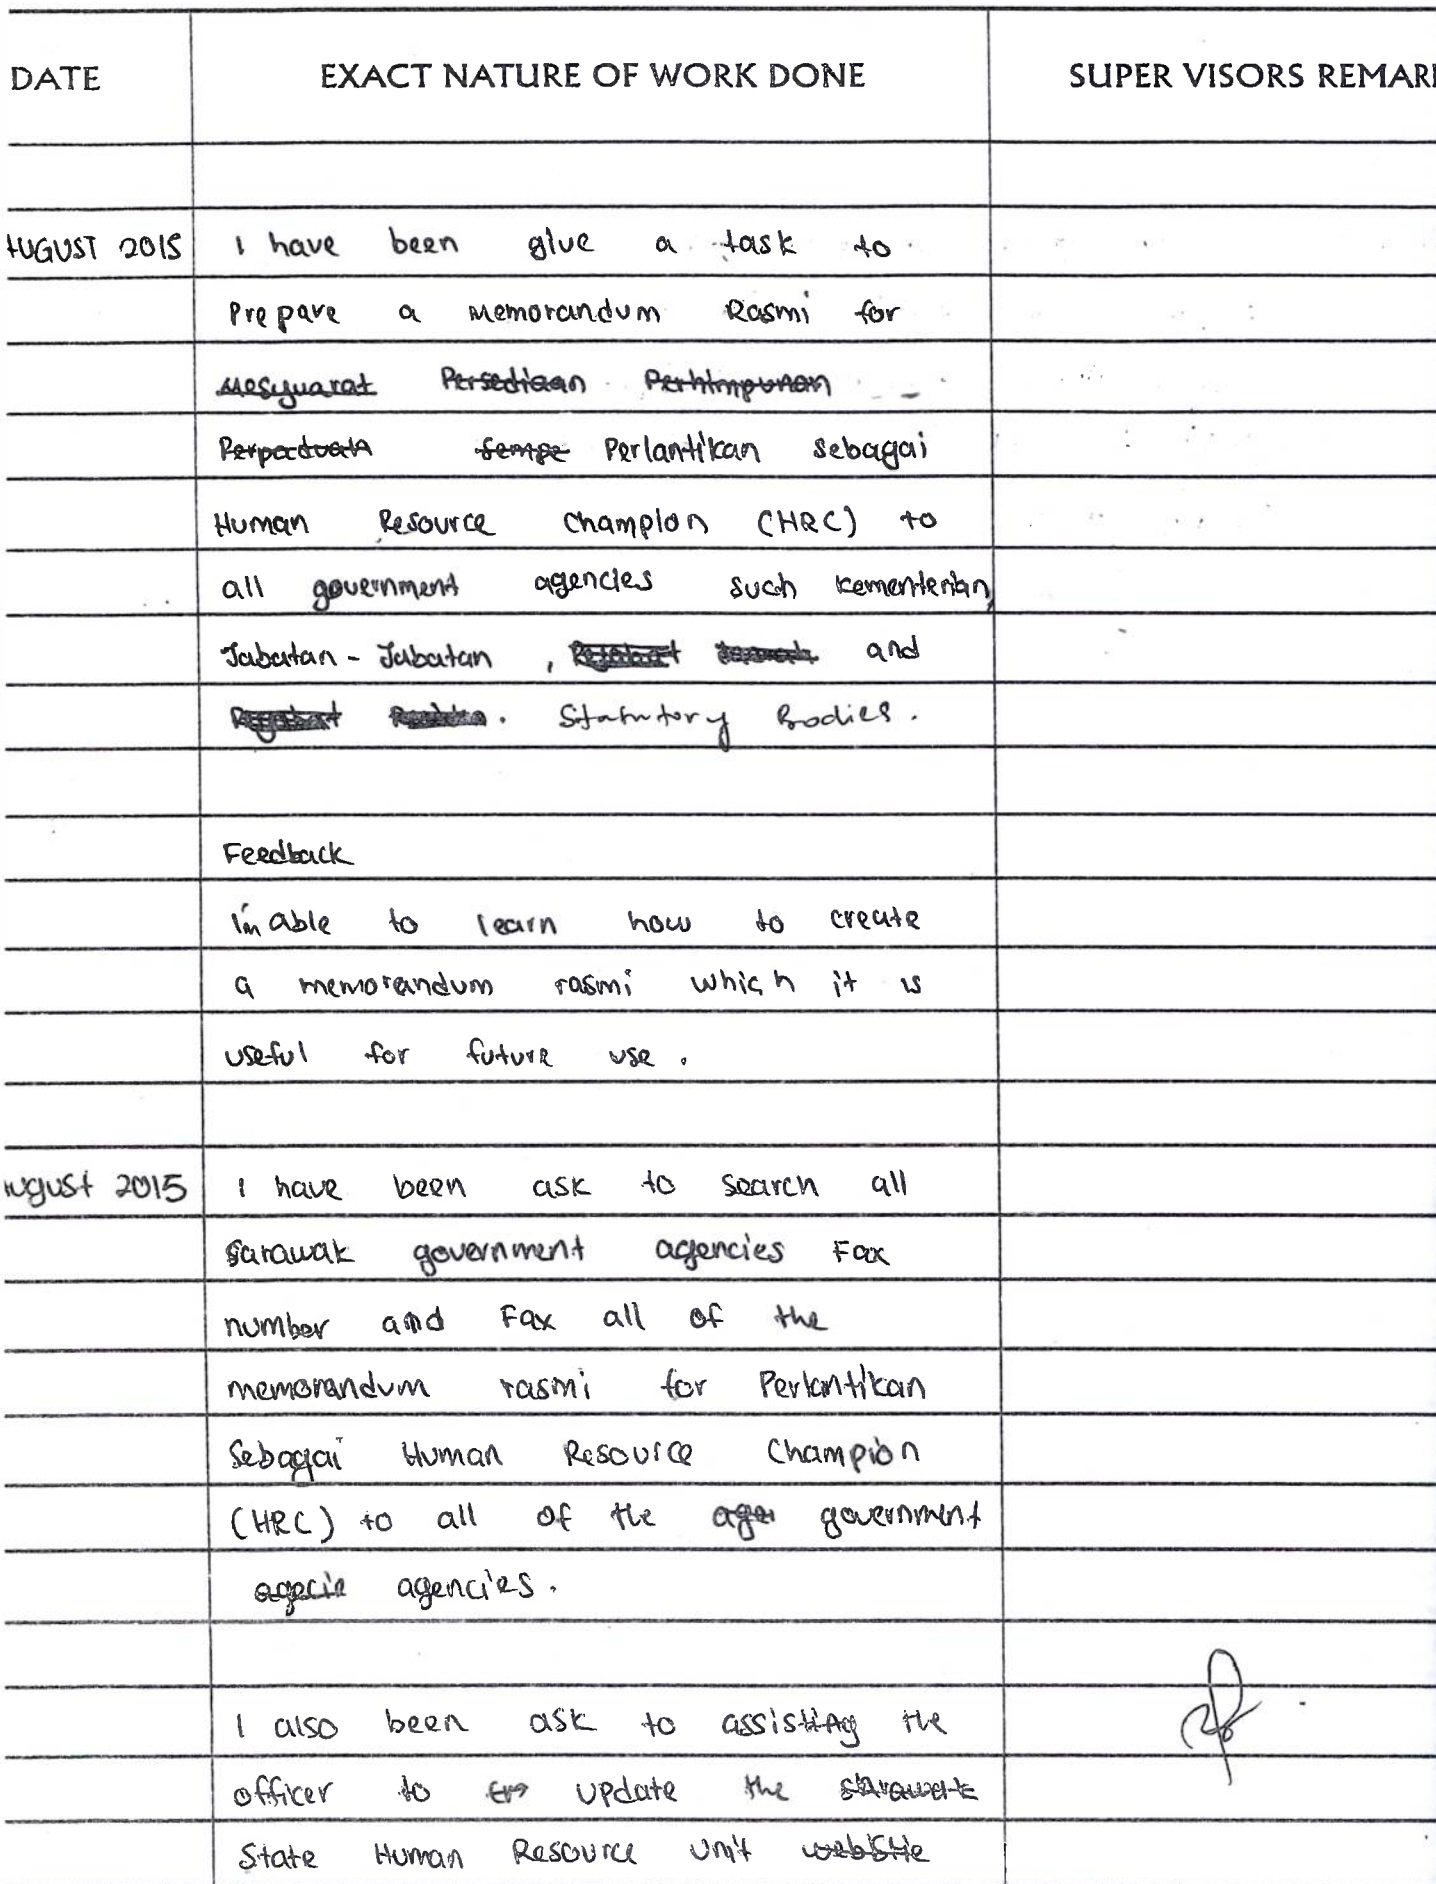 DATE EXACT NATURE OF WORK DONE SUPER VISORS REMAR
AUGUST 2015 I have been give a task to
prepare a Memorandum Rasmi for
Mesyuarat Persediaan Perhimpunan
Perpaduan sempe Perlantikan sebagai
Human Resource Champion (HRC) to
all government agencies such kementerian,
Jabatan - Jabatan , and
. Statutory Bodies.
Feedback
I'm able to learn how to create
a memorandum rasmi which it is
useful for future use .
ugust 2015 I have been ask to search all
Sarawak government agencies Fax
number and Fax all of the
memorandum rasmi for Perlantikan
Sebagai Human Resource Champion
(HRC) to all of the age government
agecie agencies .
I also been ask to assisting the
officer to update the sarawak
State Human Resource Unit webstie